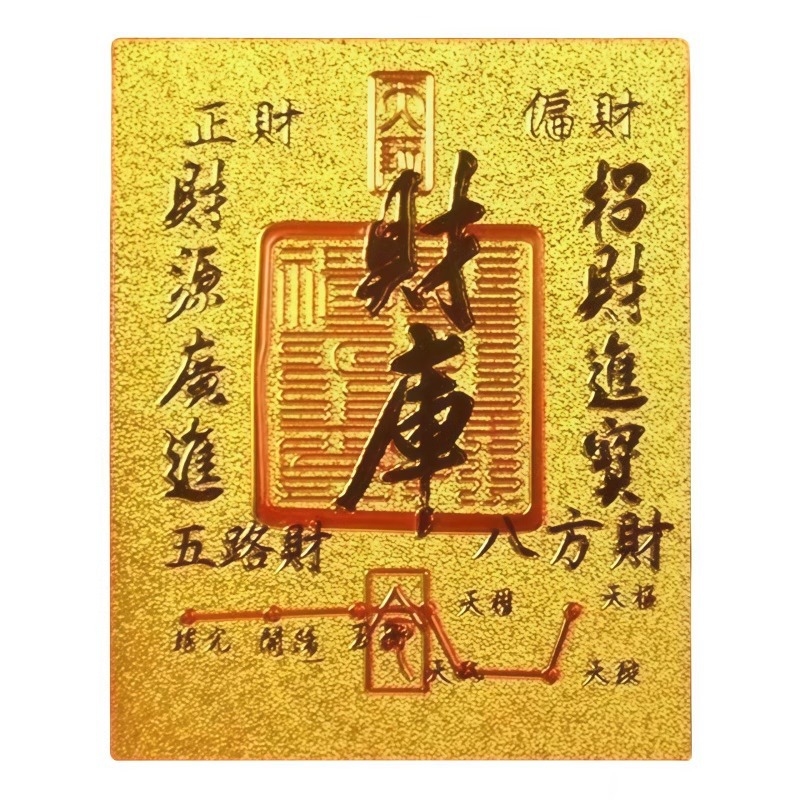 正財
偏財
財庫
招財進寶
財源廣進
五路財
八方財
令
天權
天樞
搖光
開陽
玉衡
天璣
天璇